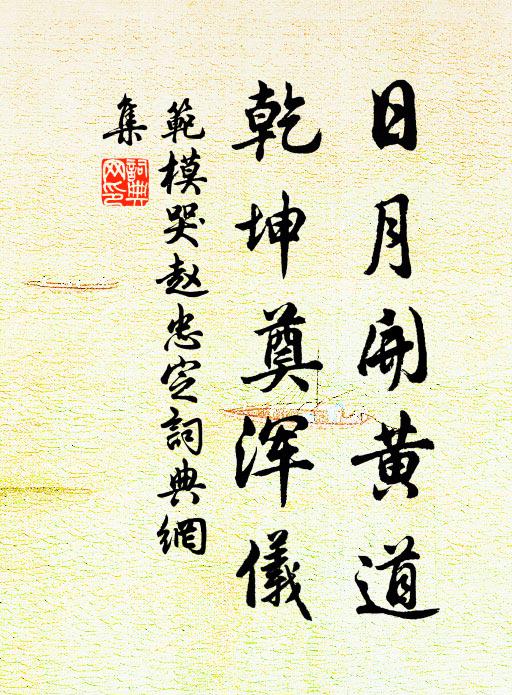 日月开黄道
乾坤奠浑仪
範模哭赵忠定詞典網
集
詞典
网印